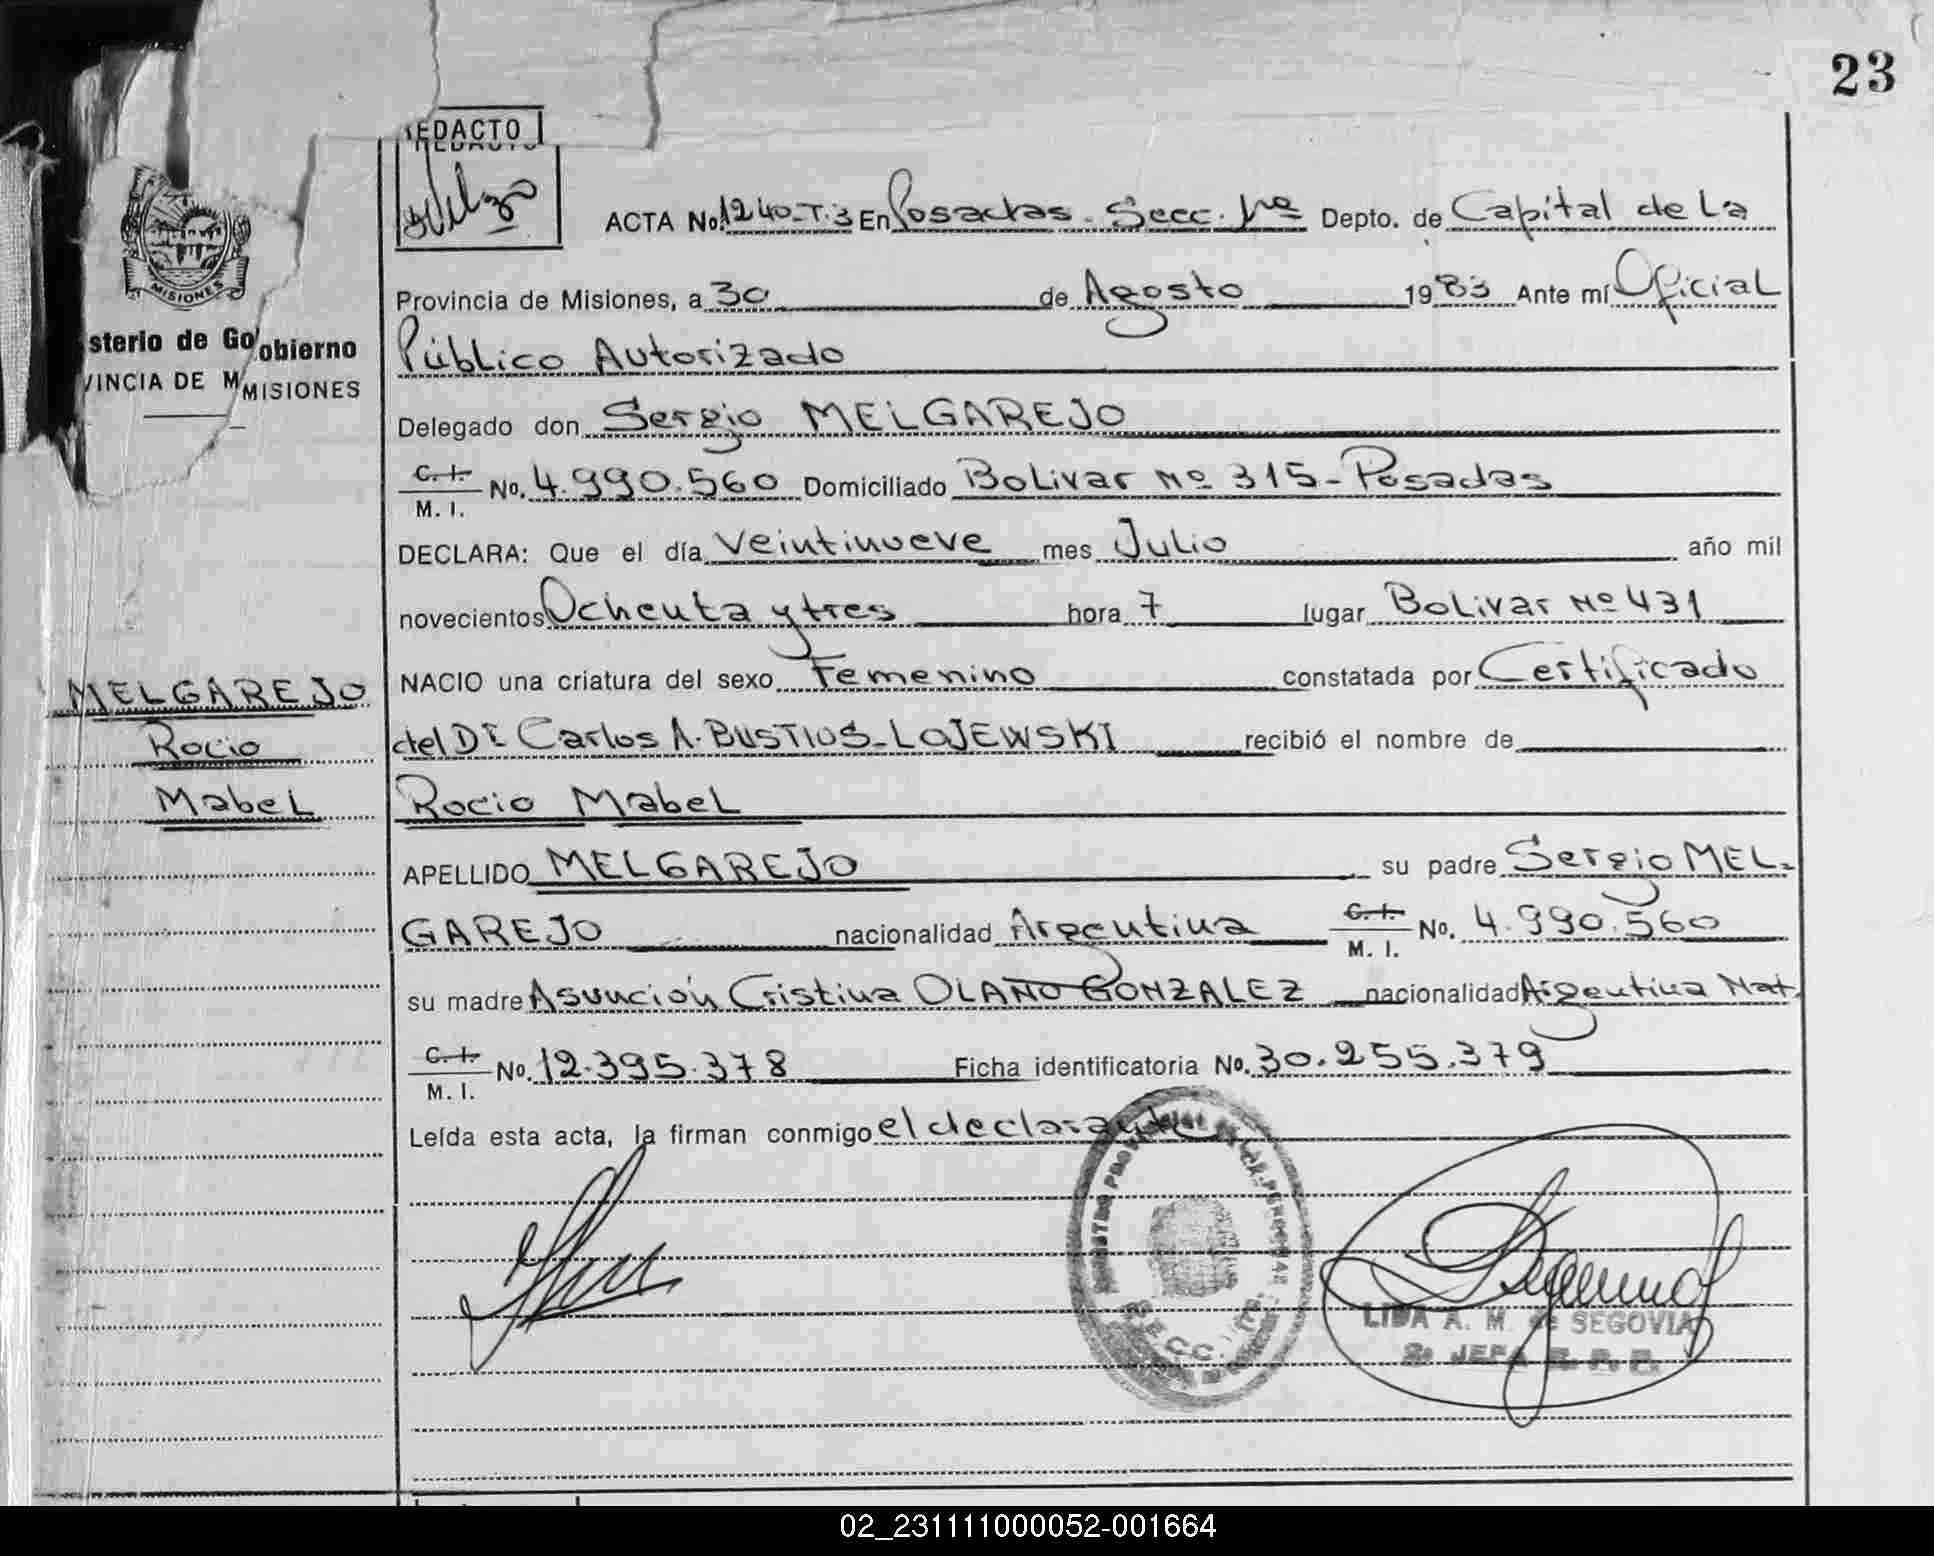 23
REDACTO
ACTA No. 1240-T.3 En Posadas - Secc. 1ra Depto. de Capital de La
MISIONES
Provincia de Misiones, a 30 de Agosto 1983 Ante mí Oficial
sterio de Gobierno
Público Autorizado
VINCIA DE MISIONES
Delegado don Sergio MELGAREJO
C. I. M. I. No. 4.990.560 Domiciliado Bolivar No 315 - Posadas
DECLARA: Que el día Veintinueve mes Julio año mil
novecientos Ochenta y tres hora 7 lugar Bolivar No 431
NACIO una criatura del sexo Femenino constatada por Certificado
MELGAREJO
del Dr Carlos A. BUSTIOS-LOJEWSKI recibió el nombre de
Rocio
Mabel
Rocio Mabel
APELLIDO MELGAREJO su padre Sergio MEL-
GAREJO nacionalidad Argentina C. I. M. I. No. 4.990.560
su madre Asunción Cristina OLAÑO GONZALEZ nacionalidad Argentina Nat.
C. I. M. I. No. 12.395.378 Ficha identificatoria No. 30.255.379
Leída esta acta, la firman conmigo el declarante
SECC. 1ra
LIDA A. M. de SEGOVIA
2a JEFA R. P. P.
02_231111000052-001664